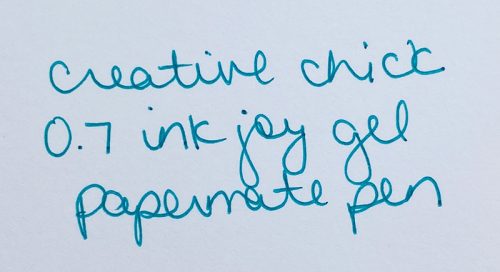 creative chick
0.7 ink joy gel
papermate pen